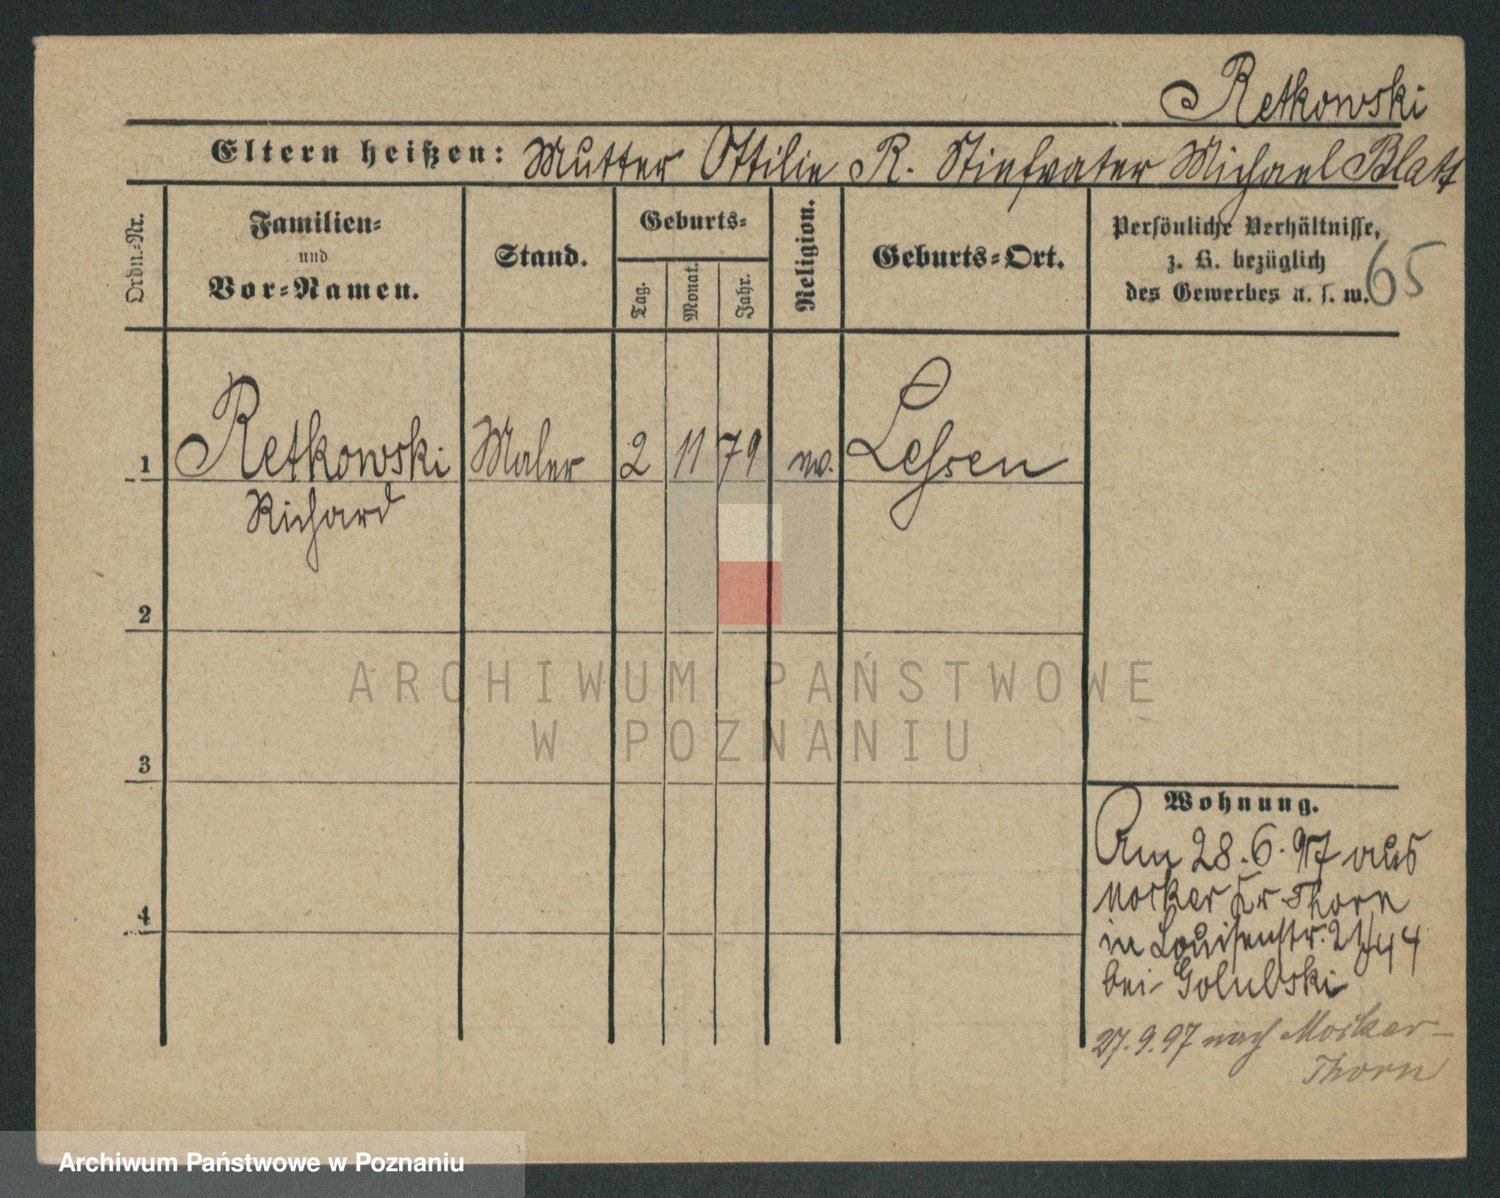 Retkowski
Eltern heißen: Mutter Ottilie R. Stiefvater Michael Blatt
Ordn.-Nr.
Familien-
und
Vor-Namen.
Stand.
Geburts-
Tag.
Monat.
Jahr.
Religion.
Geburts-Ort.
Persönliche Verhältnisse,
z. B. bezüglich
des Gewerbes u. s. w.
65
1 Retkowski Maler 2 11 79 Lessen
Richard
2
3
4
Wohnung.
Am 28.6.97 aus
Mocker Kr Thorn
in Louisenstr. 21/44
bei Golubski
27.9.97 nach Mocker-
Thorn
ARCHIWUM PAŃSTWOWE
W POZNANIU
Archiwum Państwowe w Poznaniu